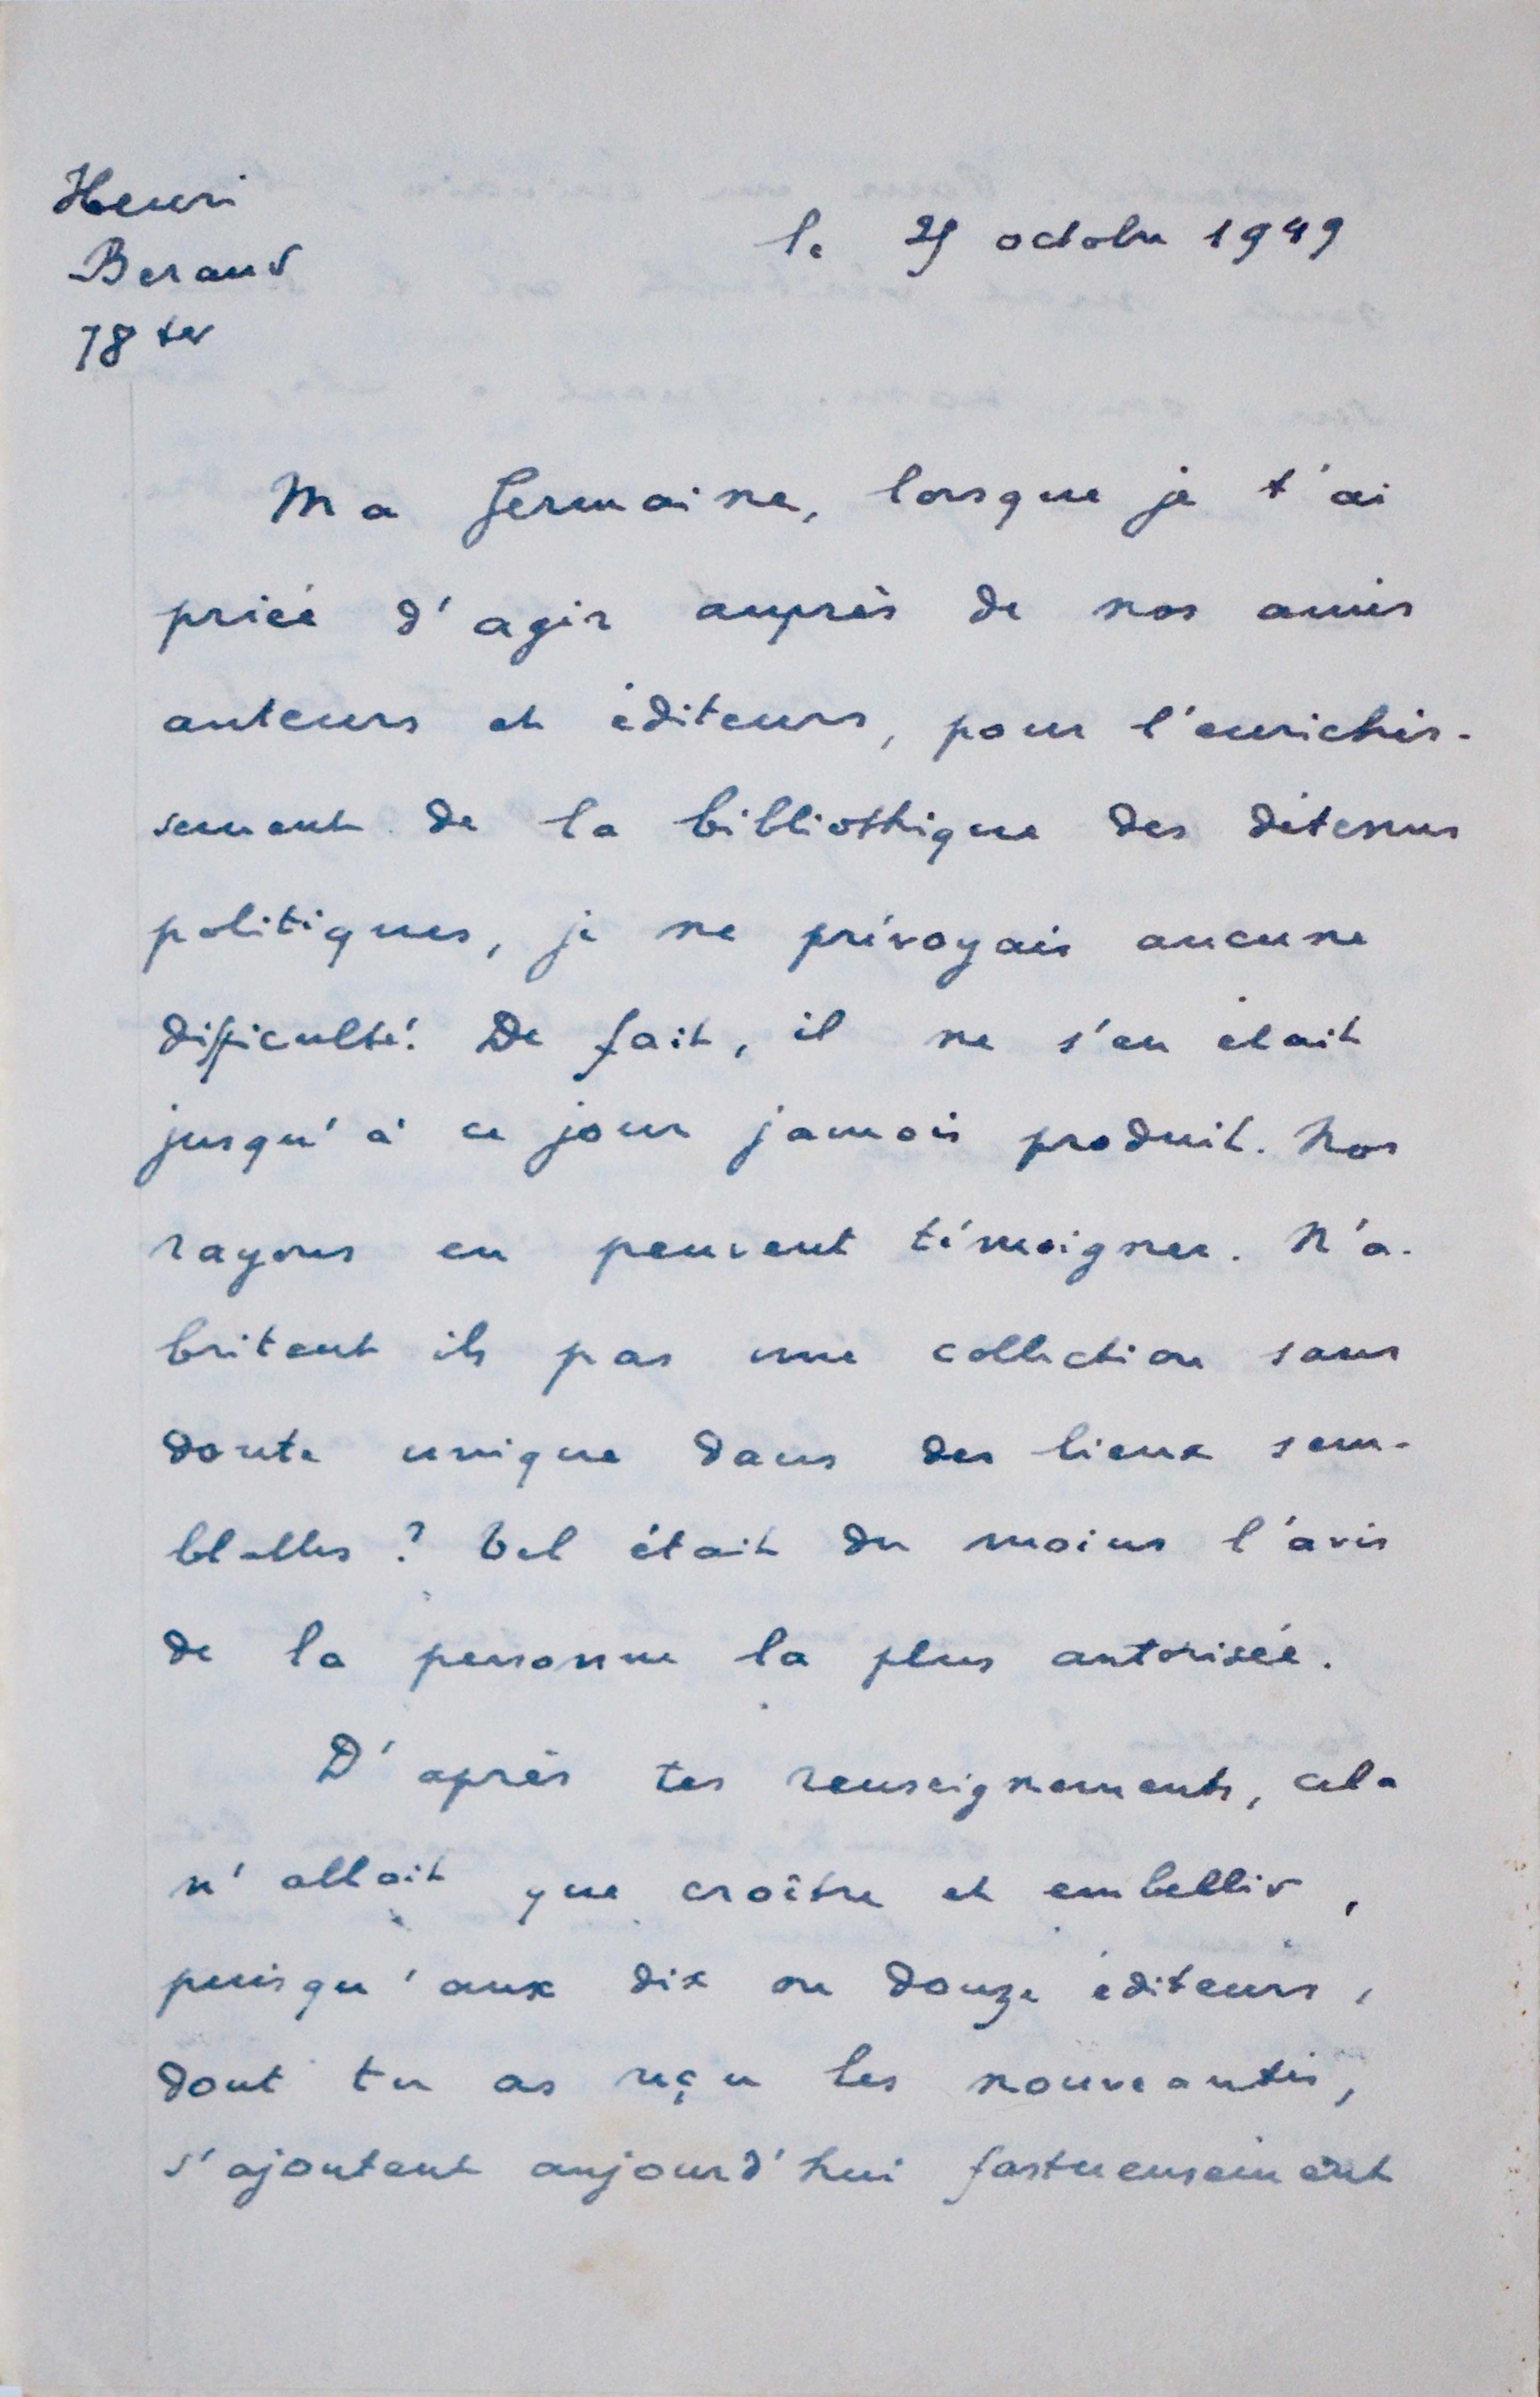 Henri
Beraud
78 ter
le 25 octobre 1949
Ma Germaine, lorsque je t'ai
priée d'agir auprès de nos amis
auteurs et éditeurs, pour l'enrichis-
sement de la bibliothèque des détenus
politiques, je ne prévoyais aucune
difficulté. De fait, il ne s'en était
jusqu'à ce jour jamais produit. Nos
rayons en peuvent témoigner. N'a-
britent ils pas une collection sans
doute unique dans des lieux sem-
blables ? Tel était du moins l'avis
de la personne la plus autorisée.
D'après tes renseignements, cela
n'allait que croître et embellir,
puisqu'aux dix ou douze éditeurs,
dont tu as reçu les nouveautés,
s'ajoutent aujourd'hui fastueusement